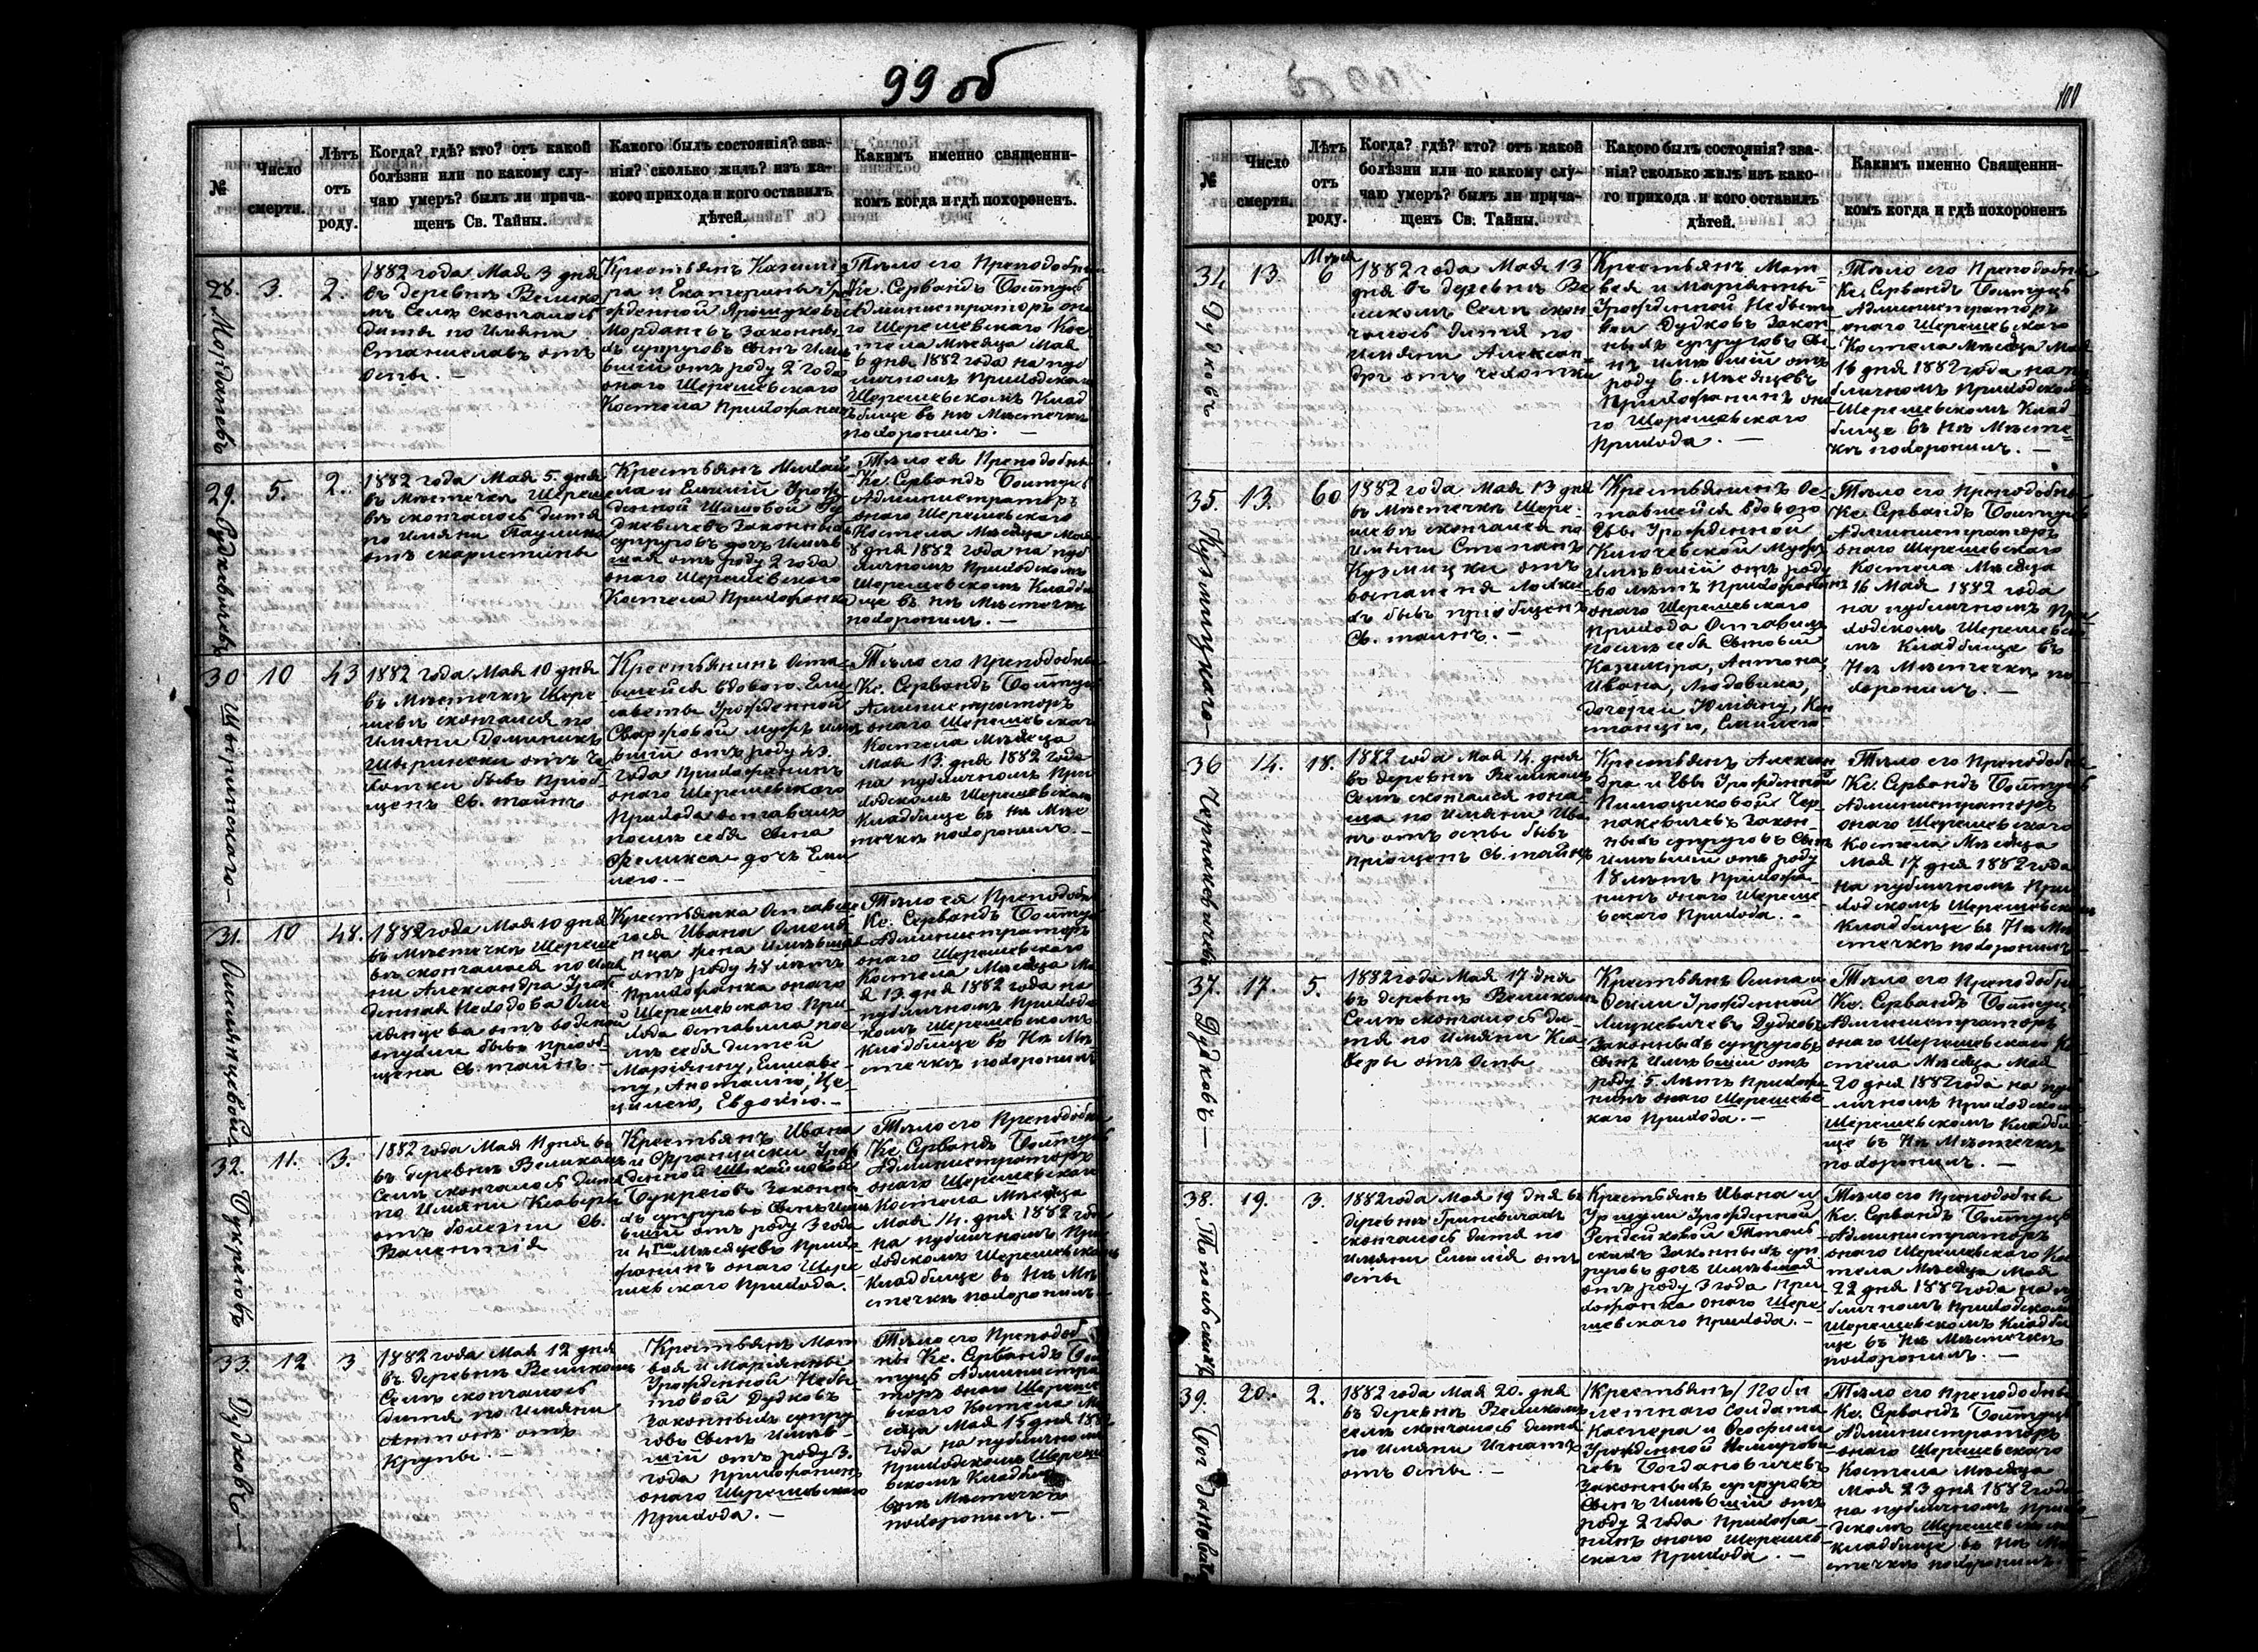 99 об
№
Число смерти.
Лѣтъ отъ роду.
Когда? гдѣ? кто? отъ какой
болѣзни или по какому слу-
чаю умеръ? былъ ли прича-
щенъ Св. Тайны.
Какого былъ состоянія? зва-
нія? сколько жилъ? изъ ка-
кого прихода и кого оставилъ
дѣтей.
Какимъ именно священни-
комъ когда и гдѣ похороненъ.
28.
3.
2.
1882 года Мая 3 дня
въ деревнѣ Велико
мъ Селѣ скончалось
дитя по имяни
Станиславъ отъ
оспы. —
Крестьянъ Казими
ра и Екатерины Уро
жденной
законны
хъ супруговъ сынъ имѣ
вшій отъ роду 2 года
онаго Шерешевского
Костела прихожанинъ
Тѣло его Преподобный
Кс. Сервандъ
Администраторъ она
го Шерешевского Кос
тела Мѣсяца Мая
6 дня 1882 года на пуб
личномъ приходском
Шерешевскомъ Клад
бище въ Мѣстечкѣ
похоронилъ. —
29.
5.
2.
1882 года Мая 5. дня
въ Мѣстечкѣ Шереше
вѣ скончалось дитя
по имяни Паулина
отъ скарлетины
Крестьянъ Михай
ла и Емилій Урож
денной
законныхъ
супруговъ дочь имѣв
шая отъ роду 2 года
онаго Шерешевского
Костела прихожанка
Тѣло ея Преподобны
Кс. Сервандъ
Администраторъ
онаго Шерешевского
Костела Мѣсяца Мая
8 дня 1882 года на пуб
личномъ приходскомъ
Шерешевскомъ Кладби
ще въ Мѣстечкѣ
похоронилъ. —
30
10
43
1882 года Мая 10 дня
въ Мѣстечкѣ Шере
шевѣ скончался по
имяни Доминикъ
отъ Че
хотки бывъ приоб
щенъ Св. тайнъ
Крестьянинъ Оста
вшейся вдовою Ели
саветы Урожденной
мужъ имѣ
вшій отъ роду 43
года прихожанинъ
онаго Шерешевского
прихода оставилъ
послѣ себя сына
Феликса дочь Еми
лію. —
Тѣло его Преподобны
Кс. Сервандъ
Администраторъ
онаго Шерешевскаго
Костела Мѣсяца
Мая 13. дня 1882 года
на публичномъ При
ходскомъ Шерешевском
Кладбище въ Мѣс
течкѣ похоронилъ. —
31.
10
48.
1882 года Мая 10 дня
въ Мѣстечкѣ Шереше
вѣ скончалася по имя
ни Александра Урож
денная
отъ водяной
опухли бывъ приоб
щена Св. тайнъ
Крестьянка Оставше
гося Ивана
жена имѣвшая
отъ роду 48 лѣтъ
прихожанка онаго
Шерешевского При
хода оставила пос
лѣ себя дѣтей
Маріянну, Елисаве
ту, Анастасію, Це
цилію, Евдокію. —
Тѣло ея Преподобн
Кс. Сервандъ
Администраторъ
онаго Шерешевского
Костела Мѣсяца Ма
я 13. дня 1882 года на
публичномъ приходс
комъ Шерешевскомъ
Кладбище въ Мѣ
стечкѣ похоронилъ
32.
11.
3.
1882 года Мая 11 дня въ
въ деревнѣ Великомъ
Селѣ скончалось дитя
по имяни Ксаверы
отъ болезни Св.
Валентія
Крестьянъ Ивана
и Францишки Урож
денной
законны
хъ супруговъ сынъ имѣ
вшій отъ роду 3 года
и 4 Мѣсяцевъ прихо
жанинъ онаго Шере
шевского прихода.
Тѣло его Преподобны
Кс. Сервандъ
Администраторъ
онаго Шерешевскаго
Костела Мѣсяца
Мая 14. дня 1882 года
на публичномъ При
ходскомъ Шерешевскомъ
Кладбище въ Мѣ
стечкѣ похоронилъ
33.
12
3
Дудковъ —
1882 года Мая 12 дня
въ деревнѣ Великомъ
Селѣ скончалось
дитя по имяни
Антонъ отъ
Крупы. —
Крестьянъ Мат
вѣя и Маріянны
Урожденной
Дудковъ
законныхъ супру
говъ сынъ имѣв
шій отъ роду 3.
года прихожанинъ
онаго Шерешевского
прихода. —
Тѣло его Преподоб
ны Кс. Сервандъ
Администра
торъ онаго Шереше
вского Костела Мѣ
сяца Мая 15 дня 1882
года на публичномъ
Приходскомъ Шереше
вскомъ Кладбище
Мѣстечкѣ
похоронилъ. —
100
№
Число смерти.
Лѣтъ отъ роду.
Когда? гдѣ? кто? отъ какой
болѣзни или по какому слу-
чаю умеръ? былъ ли прича-
щенъ Св. Тайны.
Какого былъ состоянія? зва-
нія? сколько жилъ изъ како-
го прихода и кого оставилъ
дѣтей.
Какимъ именно Священни-
комъ когда и гдѣ похороненъ
Дудковъ
13.
6
1882 года Мая 13
дня въ деревнѣ Ве
ликомъ Селѣ скон
чалось дитя по
имяни Алексан=
дръ отъ чехотки
Крестьянъ Мат=
вѣя и Маріянны
Урожденной
Дудковъ Закон
ныхъ супруговъ сы
нъ имѣвшій отъ
роду 6. Мѣсяцевъ
прихожанинъ она
го Шерешевского
прихода. —
Тѣло его Преподобны
Кс. Сервандъ
Администраторъ
онаго Шерешевскаго
Костела Мѣсяца Мая
16 дня 1882 года на пу
бличномъ приходском
Шерешевскомъ Клад
бище въ Мѣсте=
чкѣ похоронилъ. —
35.
13.
60
1882 года Мая 13 дня
въ Мѣстечкѣ Шере=
шевѣ скончался по
имяни Степанъ
Кузмицки отъ
воспаленія
хъ бывъ пріобщенъ
Св. таинъ. —
Крестьянинъ Ос
тавшейся вдовою
Евы Урожденной
Ключевской Мужъ
имѣвшій отъ роду
60 лѣтъ прихожанинъ
онаго Шерешевского
прихода оставилъ
послѣ себя сыновей
Казимѣра, Антона,
Ивана, Людовика,
дочерей Юліяну, Кон
станцію, Емилію
Тѣло его Преподобны
Кс. Сервандъ
Администраторъ
онаго Шерешевского
Костела Мѣсяца
16 Мая 1882 года
на публичномъ При
ходскомъ Шерешевско
мъ Кладбище въ
Мѣстечкѣ по
хоронилъ. —
36
14.
18.
1882 года Мая 14. дня
въ деревнѣ Великомъ
Селѣ скончался юно
ша по имяни Ива
нъ отъ оспы бывъ
пріощенъ Св. тайнъ
Крестьянъ Алексан
дра и Евы Урожденной
Закон
ныхъ супруговъ сынъ
имѣвшій отъ роду
18 лѣтъ прихожа
нинъ онаго Шереше
вского прихода. —
Тѣло его Преподобны
Кс. Сервандъ
Администраторъ
онаго Шерешевского
Костела Мѣсяца
Мая 17 дня 1882 года
на публичномъ При
ходскомъ Шерешевскомъ
Кладбище въ Мѣ
стечкѣ похоронилъ
37.
17.
5.
Дудковъ —
1882 года Мая 17 дня
въ деревнѣ Великомъ
Селѣ скончалось ди
тя по имяни Кса
веры отъ оспы
Крестьянъ
Урожденной
Дудковъ
законныхъ супруговъ
сынъ имѣвшій отъ
роду 5. лѣтъ прихожа
нинъ онаго Шерешевс
каго прихода. —
Тѣло его Преподобны
Кс. Сервандъ
Администраторъ
онаго Шерешевскаго Ко
стела Мѣсяца Мая
20 дня 1882 года на пуб
личномъ приходскомъ
Шерешевскомъ Кладби
ще въ Мѣстечкѣ
похоронилъ. —
38.
19.
3.
1882 года Мая 19 дня въ
деревнѣ Гриневичахъ
скончалось дитя по
имяни Емилія отъ
оспы
Крестьянъ Ивана и
Уршули Урожденной
законныхъ суп
руговъ дочь имѣвшая
отъ роду 3 года при
хожанка онаго Шере
шевского прихода. —
Тѣло его Преподобны
Кс. Сервандъ
Администраторъ
онаго Шерешевского Кос
тела Мѣсяца Мая
22 дня 1882 года на пу
бличномъ приходскомъ
Шерешевскомъ Кладби
ще въ Мѣстечкѣ
похоронилъ. —
39.
20.
2.
1882 года Мая 20. дня
въ деревнѣ Великомъ
селѣ скончалось дитя
по имяни Игнатъ
отъ оспы. —
Крестьянъ
солдата
Каспера и Теофили
Урожденной
Богдановичевъ
законныхъ супруговъ
сынъ имѣвшій отъ
роду 2 года прихожа
нинъ онаго Шерешев
ского прихода. —
Тѣло его Преподобны
Кс. Сервандъ
Администраторъ
онаго Шерешевского
Костела Мѣсяца
Мая 23 дня 1882 года
на публичномъ прихо
дскомъ Шерешевскомъ
кладбище въ Мѣ
стечкѣ похоронилъ.